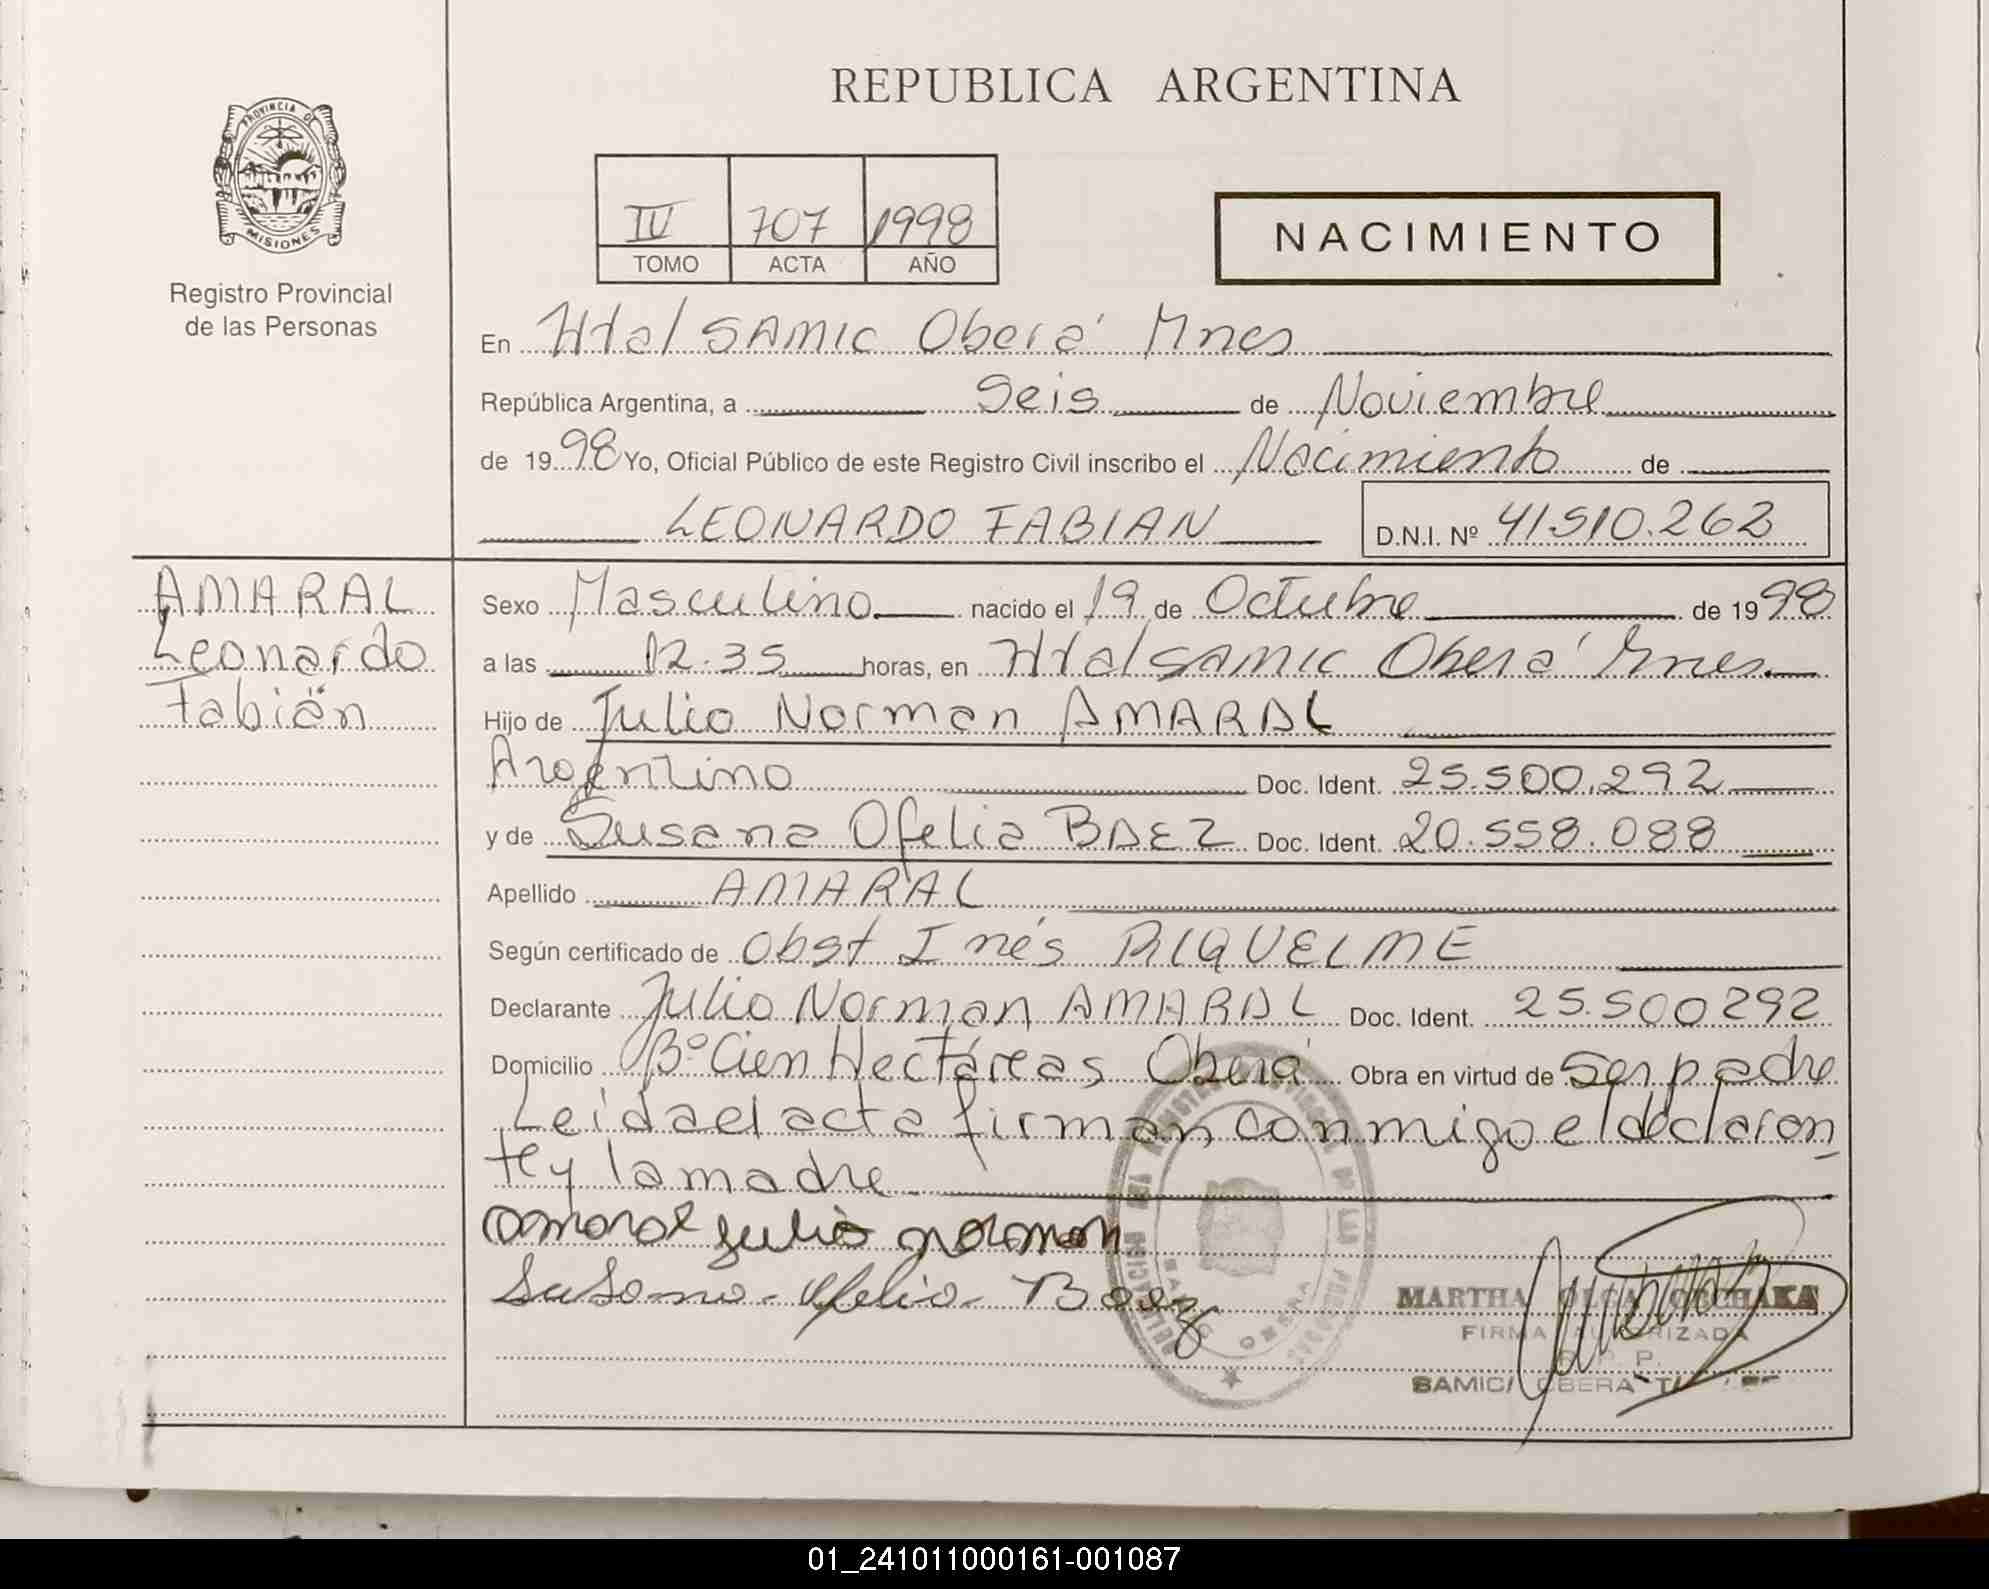 REPUBLICA ARGENTINA
PROVINCIA DE
MISIONES
Registro Provincial
de las Personas
IV 707 1998
TOMO ACTA AÑO
NACIMIENTO
En Htal SAMIC Oberá Mnes
República Argentina, a Seis de Noviembre
de 1998 Yo, Oficial Público de este Registro Civil inscribo el Nacimiento de
LEONARDO FABIAN D.N.I. Nº 41.510.262
AMARAL
Leonardo
Fabián
Sexo Masculino nacido el 19 de Octubre de 1998
a las 12.35 horas, en Htal SAMIC Oberá Mnes.
Hijo de Julio Norman AMARAL
Argentino Doc. Ident. 25.500.292
y de Susana Ofelia BAEZ Doc. Ident. 20.558.088
Apellido AMARAL
Según certificado de Obst Inés RIQUELME
Declarante Julio Norman AMARAL Doc. Ident. 25.500292
Domicilio Bº Cien Hectáreas Oberá Obra en virtud de Ser padre
Leida el acta firman conmigo el declaran
te y la madre
amaral julio norman
Susana Ofelia Baez
MARTHA OLGA
FIRMA AUTORIZADA
SAMIC OBERA
01_241011000161-001087